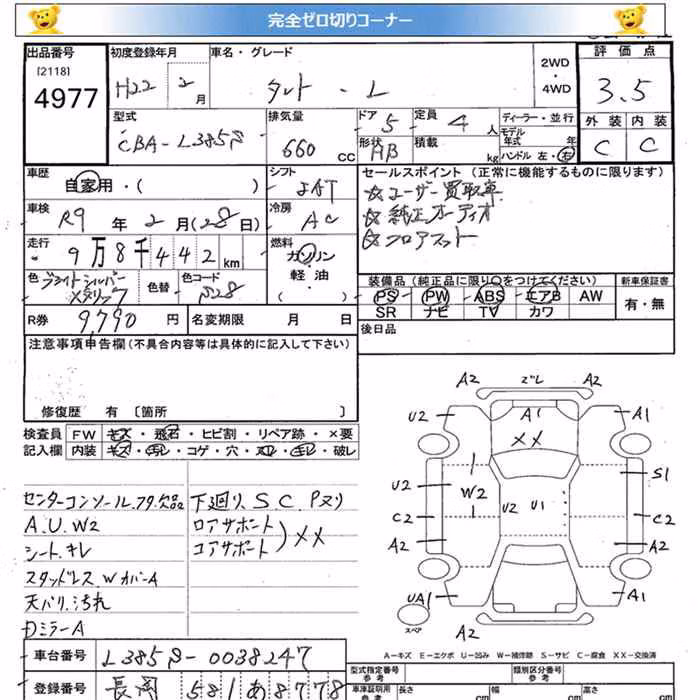 完全ゼロ切りコーナー
出品番号 初度登録年月 車名・グレード 2WD・4WD 評価点
[2118]
4977 H22 2月 タント・L 3.5
型式 排気量 ドア 定員 ディーラー・並行 外装 内装
CBA-L385S 660 CC 5 4人 モデル年式 年 C C
形状 積載 ハンドル 左・右
HB kg
車歴 シフト セールスポイント(正常に機能するものに限ります)
自家用・( ) IAT ☆ユーザー買取車
車検 冷房 ☆純正オーディオ
R9年2月(28日) AC ☆フロアマット
走行 燃料
9万8千442km ガソリン
軽・油
( )
色 ブライトシルバーメタリック 色替 色コード S28
装備品(純正品に限り〇をつけてください) 新車保証書
PS PW ABS エアB AW 有・無
SR ナビ TV カワ
R券 9,790円 名変期限 月 日 後日品
注意事項申告欄(不具合内容等は具体的に記入して下さい)
修復歴 有 〔箇所 〕
検査員 FW キズ・飛石・ヒビ割・リペア跡・×要
記入欄 内装 キズ・汚レ・コゲ・穴・スレ・キレ・破レ
センターコンソールフタ欠品 下廻り、SC、Pヌリ
A.U.W2 ロアサポート
シート、キレ コアサポート)XX
スタッドレスWカバーA
天バリ汚れ
DミラーA
A2 マドレ A2
U2 A1 A1
XX
S1
U2 W2 U2 U1
C2 C2
A2 A2
UA1 A1
スペア
A2
A-キズ E-エクボ U-凹み W-補修跡 S-サビ C-腐食 XX-交換済
車台番号 L385S-0038247
登録番号 長岡 581あ8778
型式指定番号 参考 類別区分番号 参考
車庫証明用 参考 長さ cm 幅 cm 高さ cm